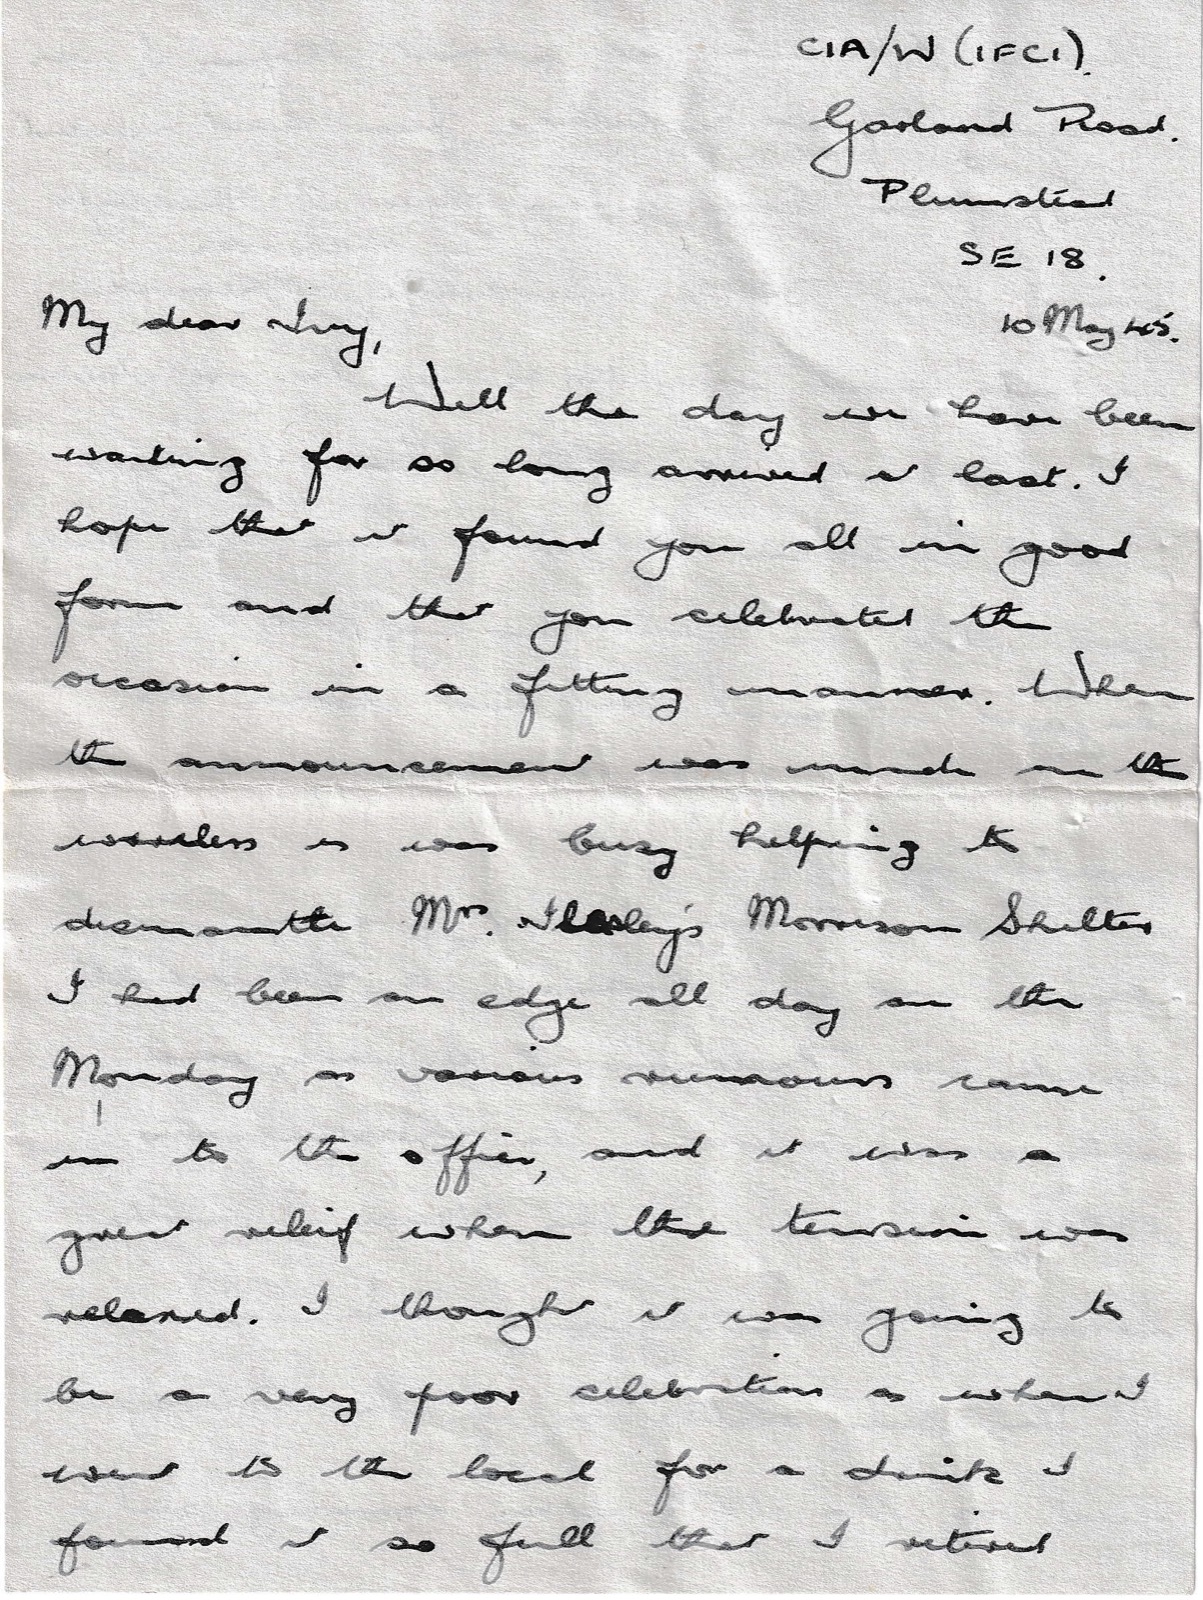 CIA/W (IFCI).
Garland Road.
Plumstead
SE 18.
10 May 45.
My dear Ivy,
Well the day we have been
waiting for so long arrived at last. I
hope that it found you all in good
form and that you celebrated the
occasion in a fitting manner. When
the announcement was made on the
wireless I was busy helping to
dismantle Mrs. Morrison Shelter
I had been on edge all day on the
Monday as various rumours came
in to the office, and it was a
great relief when the tension was
relaxed. I thought it was going to
be a very poor celebration as when I
went to the local for a drink I
found it so full that I retired